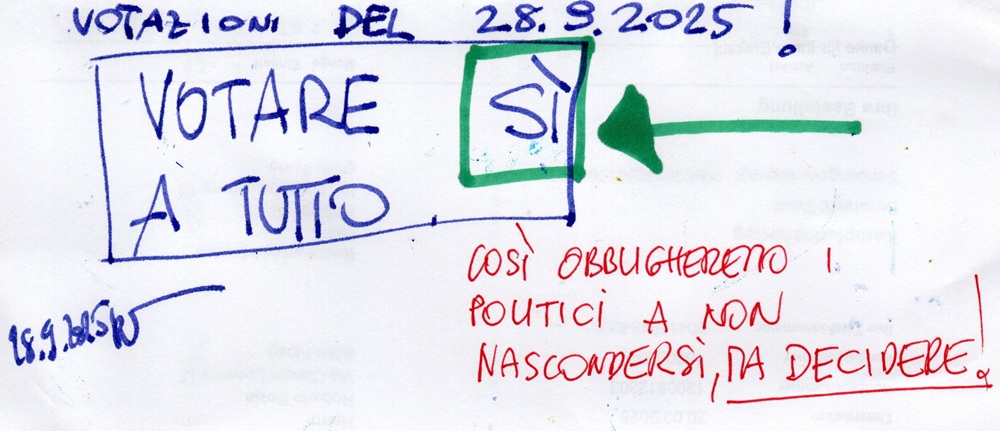 VOTAZIONI DEL 28.9.2025!
VOTARE SÌ
A TUTTO
COSÌ OBBLIGHERETE I
POLITICI A NON
NASCONDERSÌ, MA DECIDERE!
28.9.2025